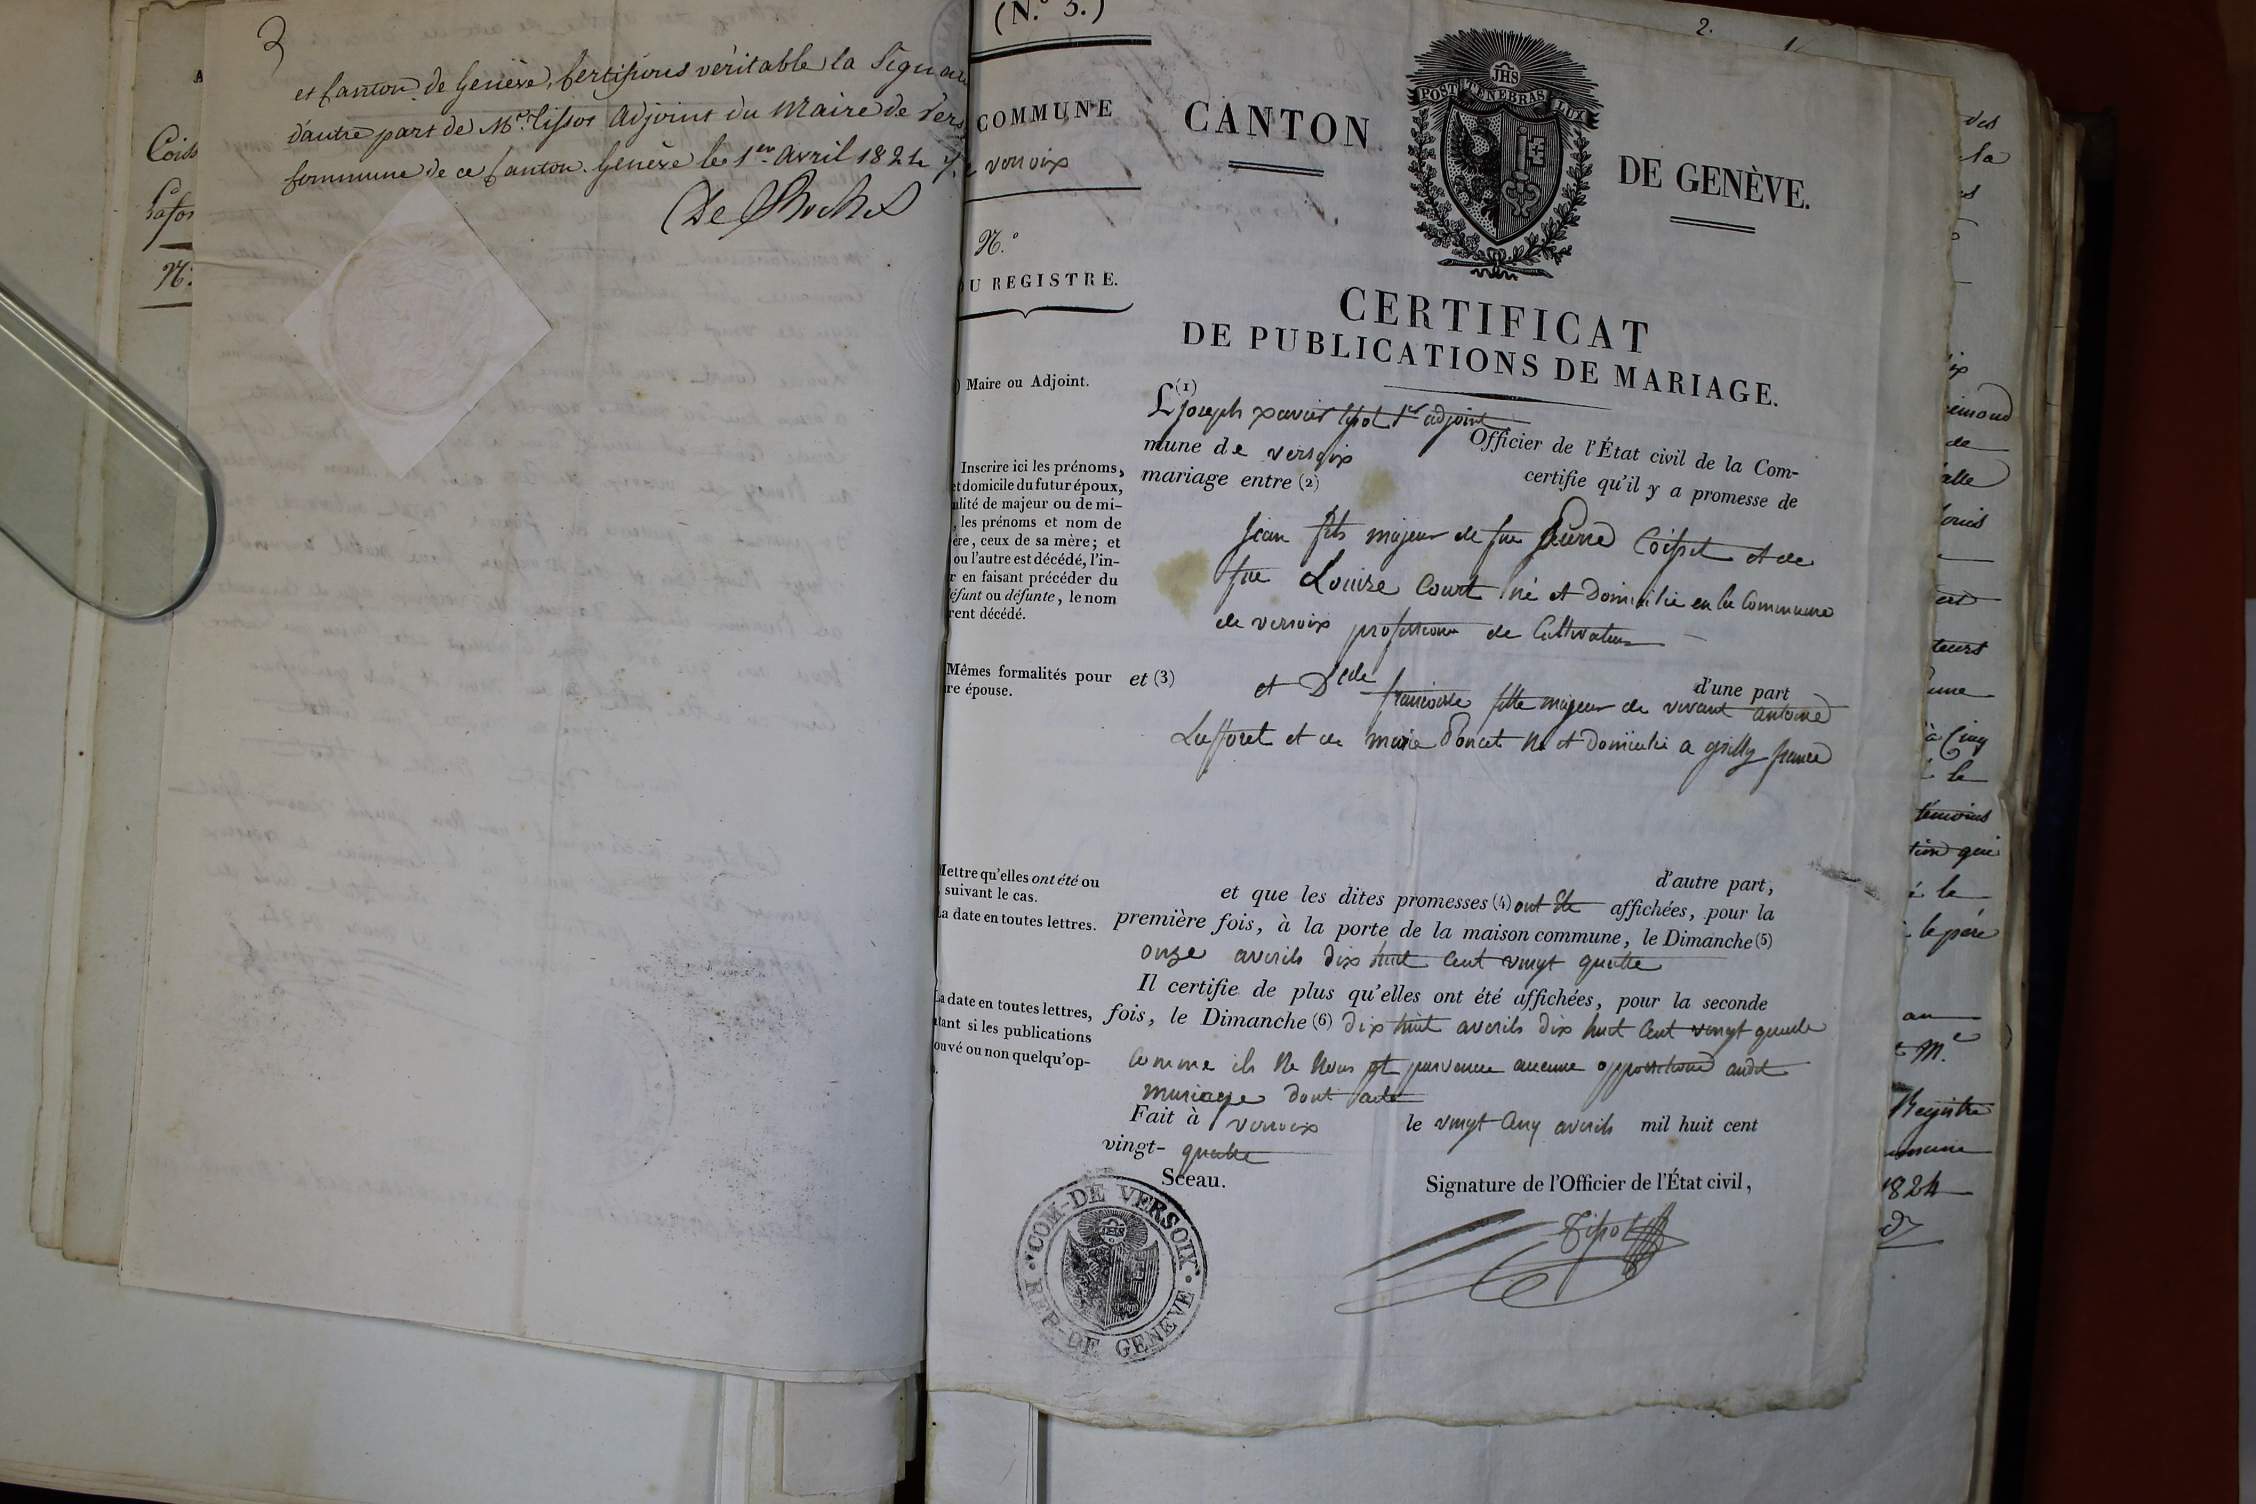 3
et Canton de Genève, Certifions véritable la Signa
d'autre part de Mr. Tissot Adjoint du Maire de Vers
Commune de ce Canton. Genève le 1er. Avril 1824
Coiss
Lafor
N.
(N.° 5.)
COMMUNE
versoix
N.°
U REGISTRE.
2.
CANTON
DE GENÈVE.
JHS
POST TENEBRAS LUX
CERTIFICAT
DE PUBLICATIONS DE MARIAGE.
Maire ou Adjoint.
L (1) joseph xavier tisot 1er adjoint
Officier de l'État civil de la Com-
mune de versoix
certifie qu'il y a promesse de
mariage entre (2)
Inscrire ici les prénoms,
et domicile du futur époux,
alité de majeur ou de mi-
, les prénoms et nom de
ère, ceux de sa mère; et
ou l'autre est décédé, l'in-
r en faisant précéder du
éfunt ou défunte, le nom
rent décédé.
Jean fils majeur de fue pierre Coissat et de
fue Louise Court né et Domicilié en la Commune
de versoix profession de Cultivateur
d'une part
Mêmes formalités pour
re épouse.
et (3)
et Delle francoise fille majeur de vivant antoine
Lafforet et de marie Poncet né et Domicilié a grilly france
d'autre part,
Mettre qu'elles ont été ou
suivant le cas.
La date en toutes lettres.
et que les dites promesses (4) ont été affichées, pour la
première fois, à la porte de la maison commune, le Dimanche (5)
onze avrils dix huit Cent vingt quatre
Il certifie de plus qu'elles ont été affichées, pour la seconde
fois, le Dimanche (6) dix huit avrils dix huit Cent vingt quatre
La date en toutes lettres,
tant si les publications
ouvé ou non quelqu'op-
Comme ils ne nous et parvenue aucune oppossitions audit
mariage dont acte
Fait à versoix le vingt Cinq avrils mil huit cent
vingt- quatre
Sceau.
Signature de l'Officier de l'État civil,
Tisot
COM-DE VERSOIX
REP-DE GENEVE
JHS
des
la
de
ouis
teurs
une
à Cinq
le
témoins
tion que
à le
le père
au
Registre
1824